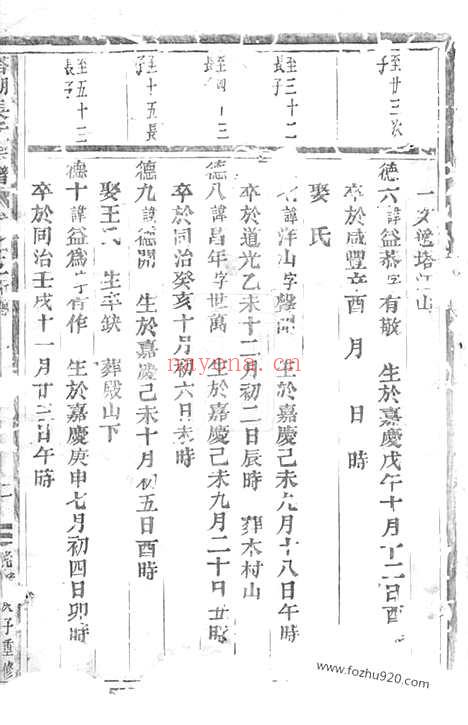 至廿三次
子
至三十二
長子
至四十三
長子
至十五長
子
至五十三
長子
德六諱益恭字有敬 生於嘉慶戊午十月十二日酉
卒於咸豐辛酉 月 日 時
娶 氏
七諱洋山字聲聞 生於嘉慶己未九月十八日午時
卒於道光乙未十二月初二日辰時 葬木村山
德八諱昌年字世萬 生於嘉慶己未九月二十日丑時
卒於同治癸亥十月初六日未時
德九諱德開 生於嘉慶己未十月初五日酉時
娶王氏 生卒缺 葬殿山下
德十諱益為字肯作 生於嘉慶庚申七月初四日卯時
卒於同治壬戌十一月廿三日午時
子重修
nayona.cn
www.fozhu920.com